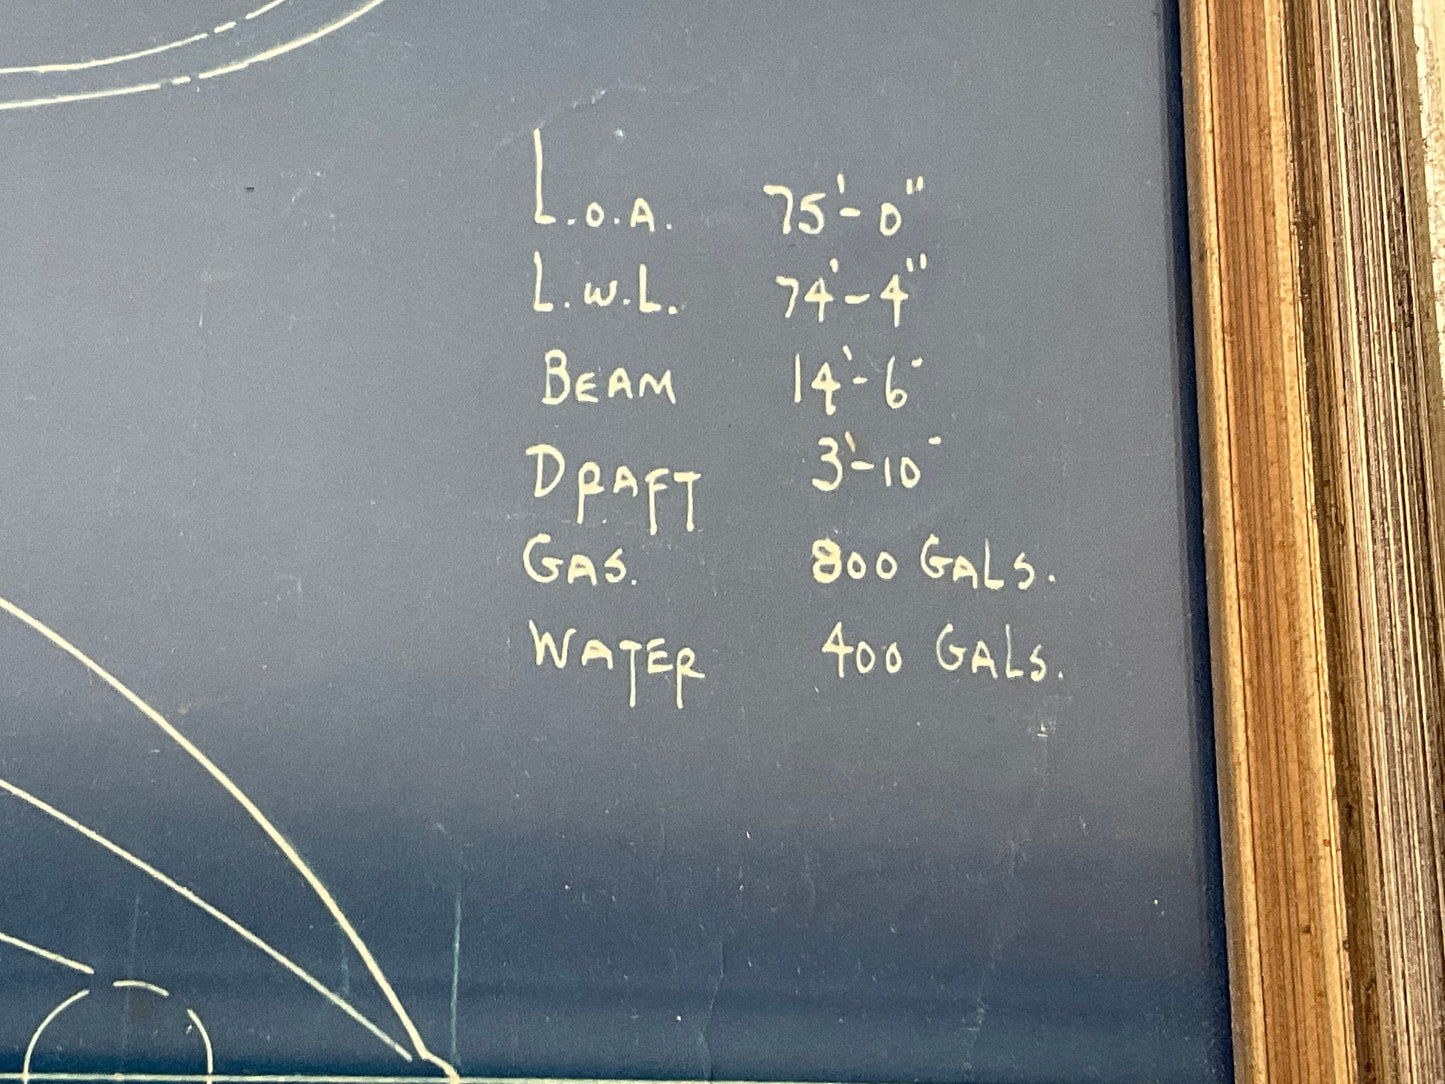 L.O.A. 75'-0"
L.W.L. 74'-4"
BEAM 14'-6"
DRAFT 3'-10"
GAS. 800 GALS.
WATER 400 GALS.